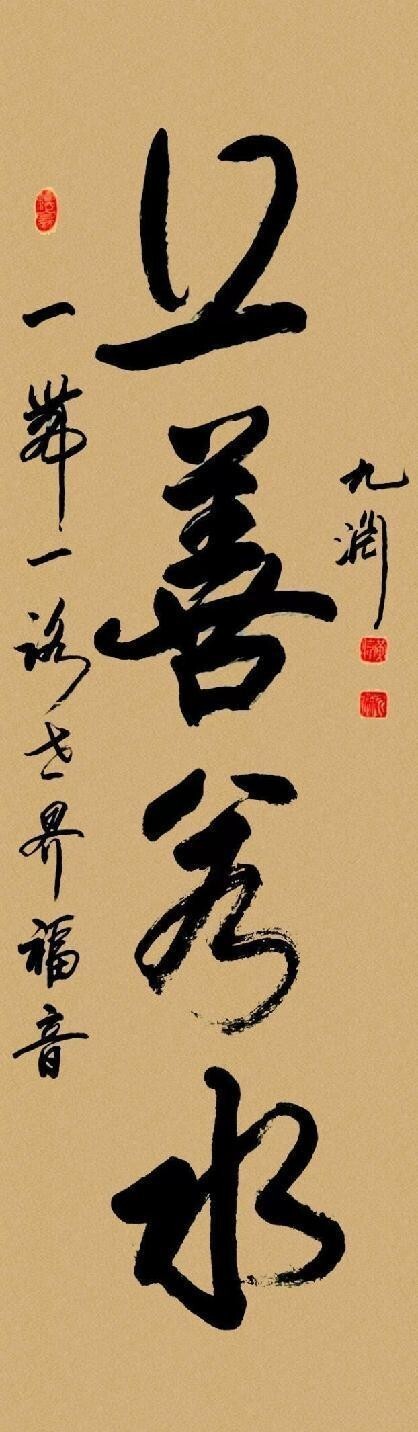 九淵
上善若水
一帶一路世界福音